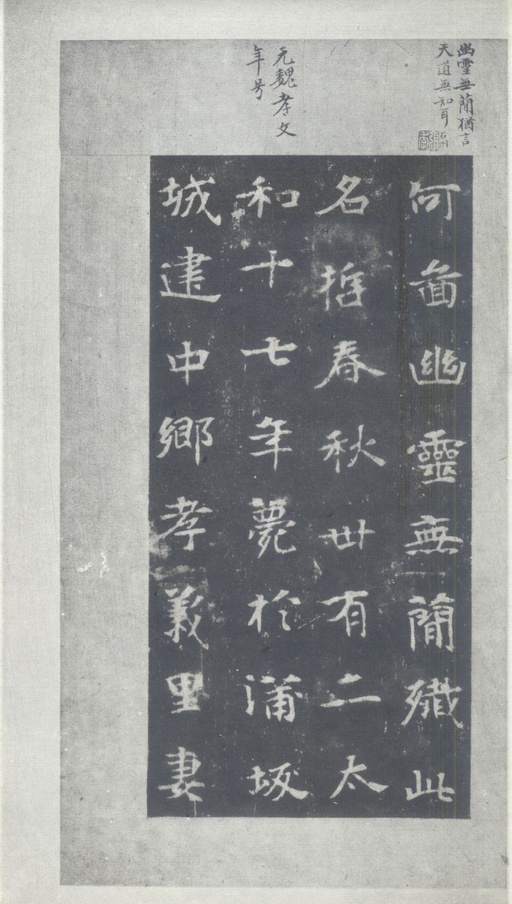 幽靈無蕳猶言
天道無知耳
元魏孝文
年号
何啚幽靈無蕳殲此
名哲春秋卌有二太
和十七年薨於蒲坂
城建中鄉孝義里妻